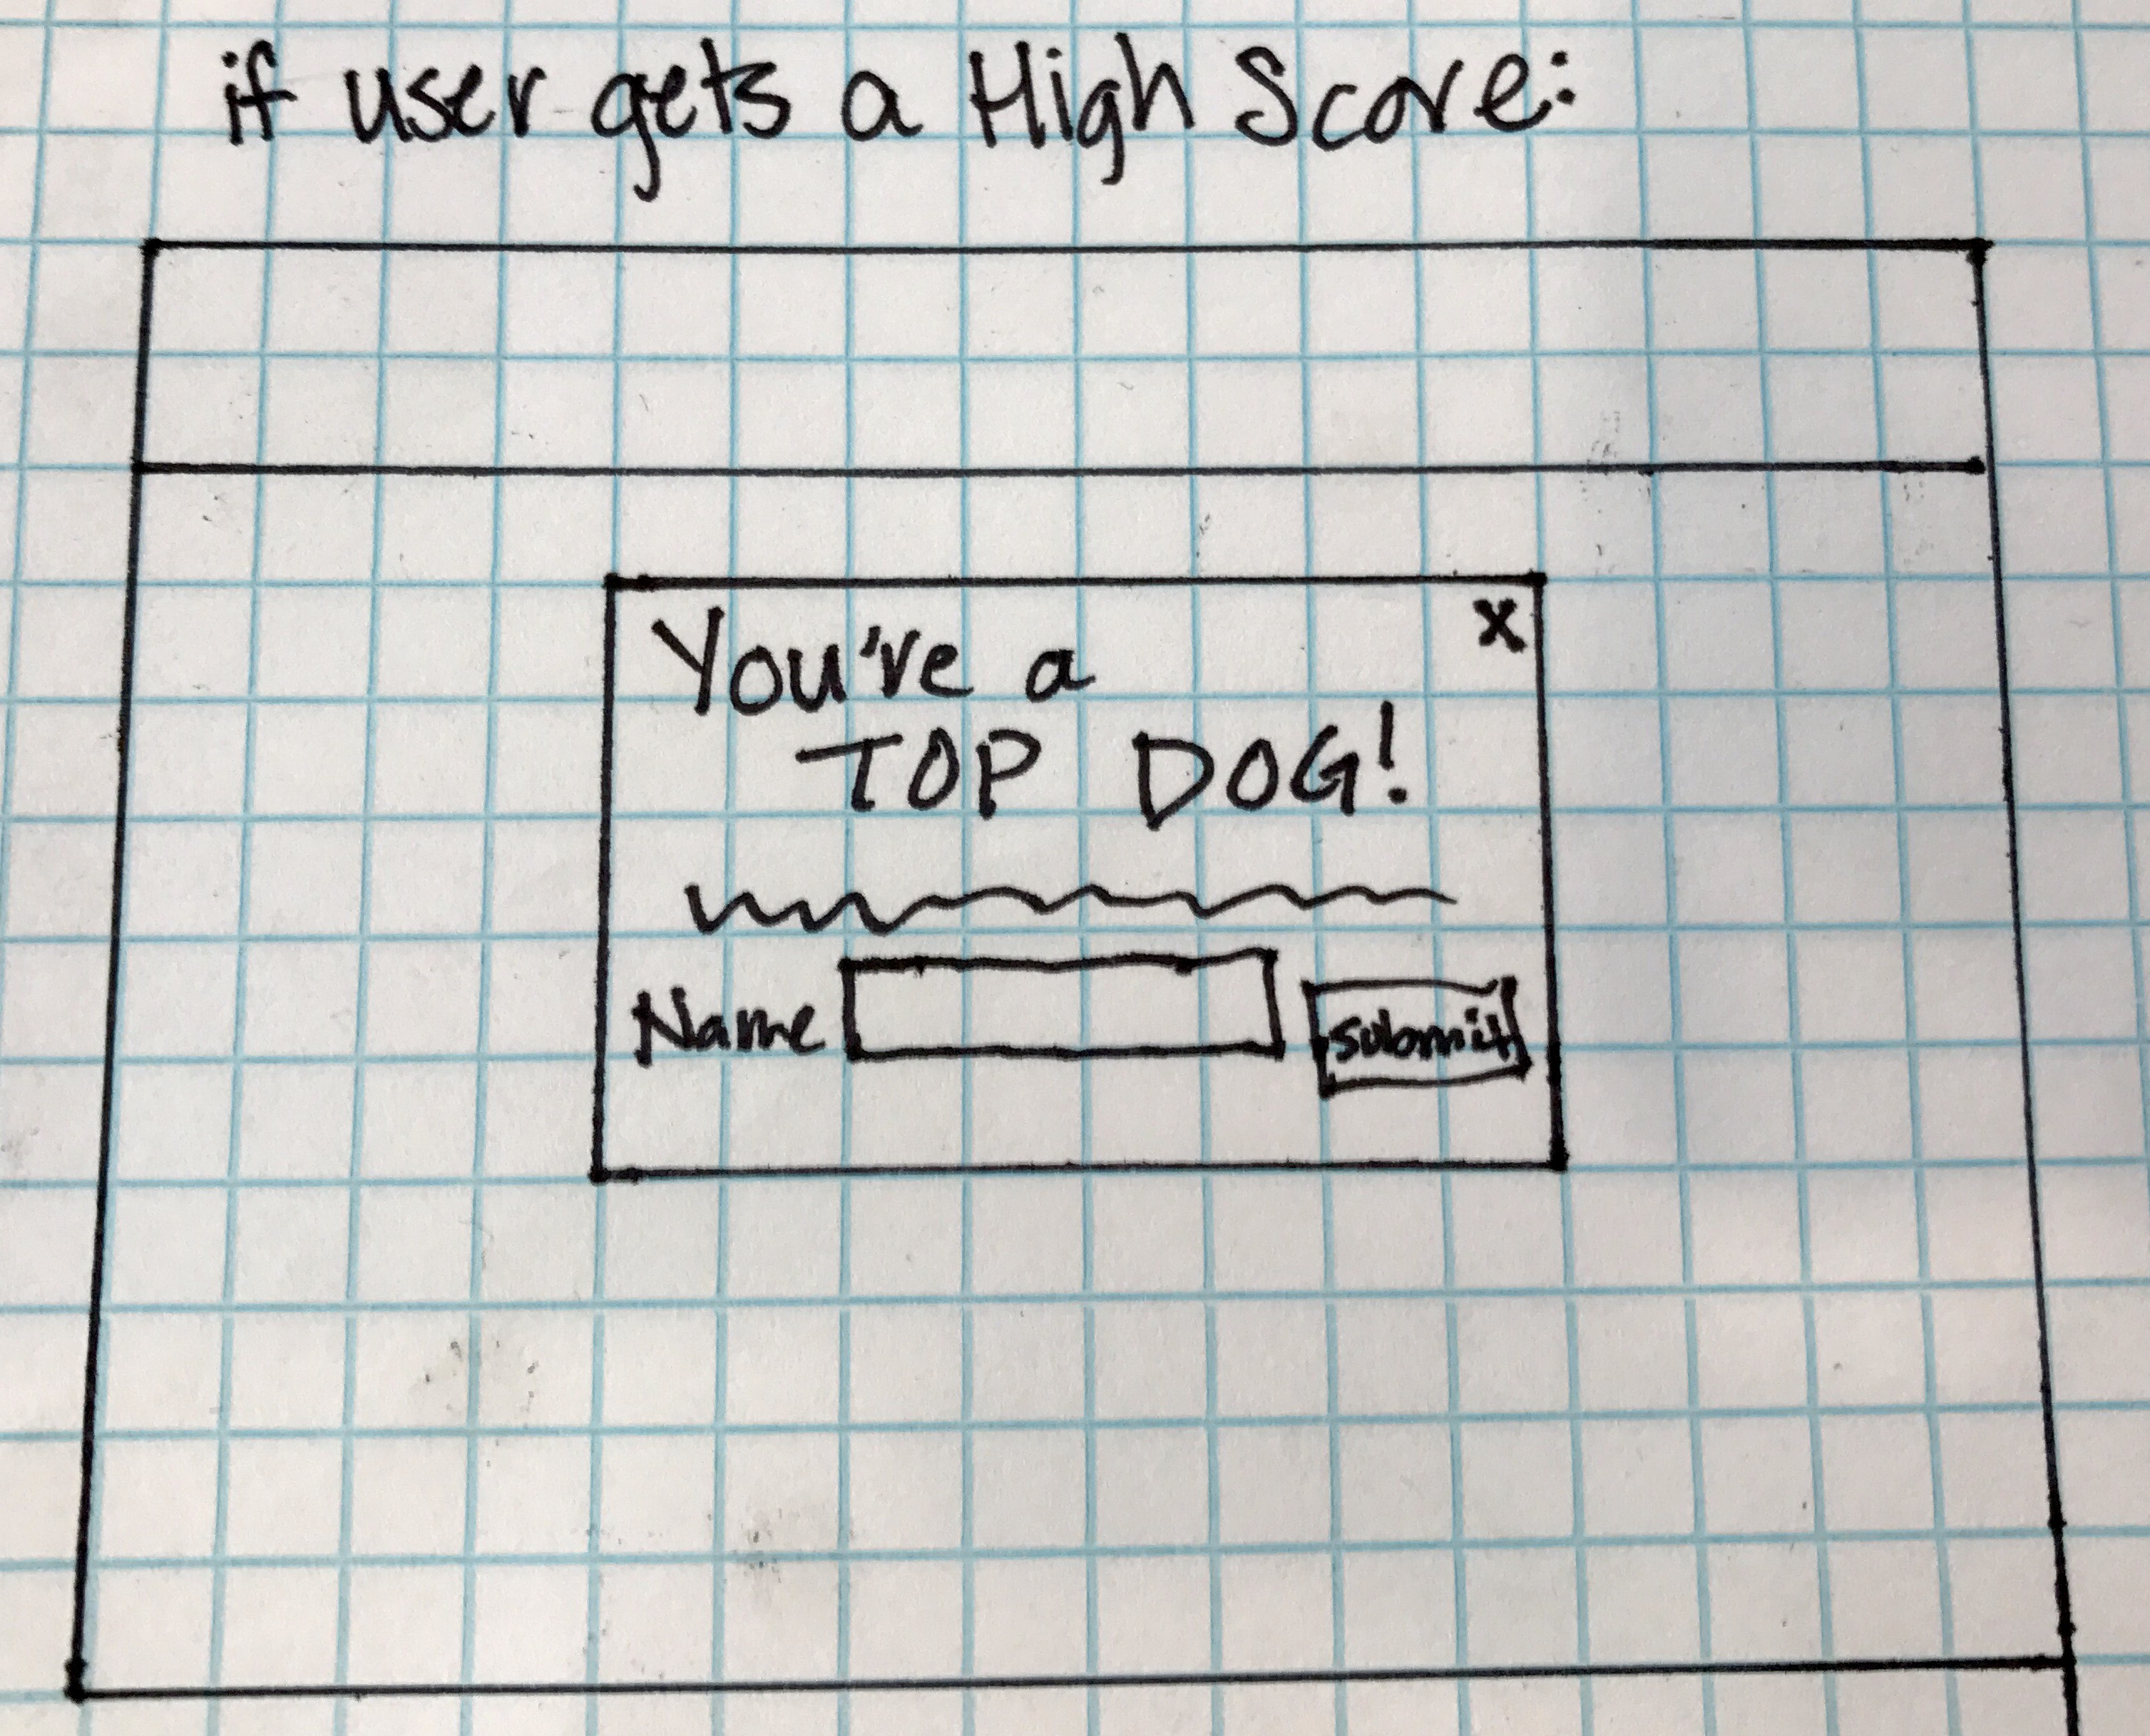 if user gets a High Score:
x
You've a
TOP DOG!
Name
submit